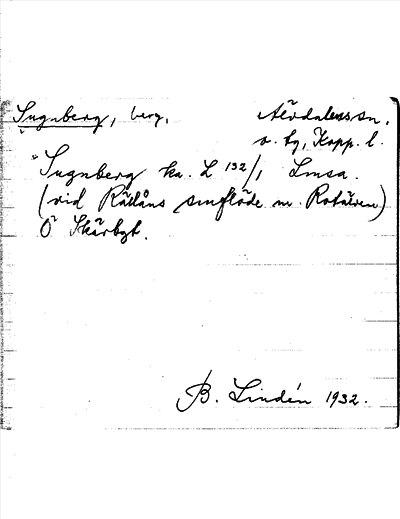 Sugnberg, berg,
Älvdalens sn.
o. tg, Kopp. l.
"Sugnberg ka. L 132/1, Lmsa.
(vid Rällåns inflöde m. Rotälven)
Ö Skärbgt.
B. Lindén 1932.